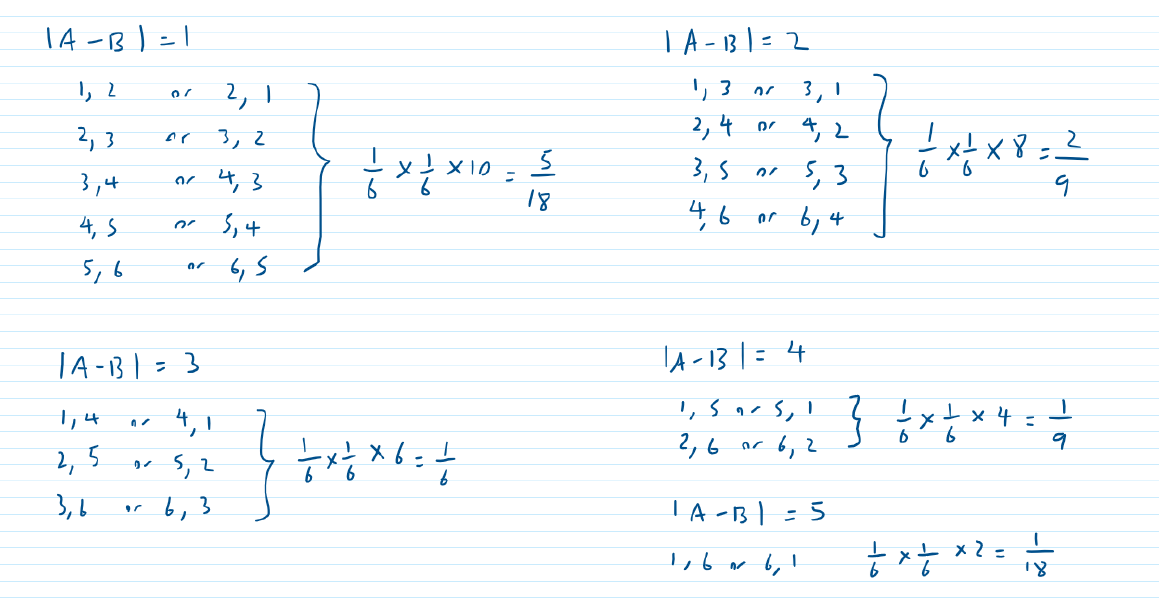 |A - B| = 1
1, 2 or 2, 1
2, 3 or 3, 2
3, 4 or 4, 3
4, 5 or 5, 4
5, 6 or 6, 5
1/6 × 1/6 × 10 = 5/18
|A - B| = 2
1, 3 or 3, 1
2, 4 or 4, 2
3, 5 or 5, 3
4, 6 or 6, 4
1/6 × 1/6 × 8 = 2/9
|A - B| = 3
1, 4 or 4, 1
2, 5 or 5, 2
3, 6 or 6, 3
1/6 × 1/6 × 6 = 1/6
|A - B| = 4
1, 5 or 5, 1
2, 6 or 6, 2
1/6 × 1/6 × 4 = 1/9
|A - B| = 5
1, 6 or 6, 1 1/6 × 1/6 × 2 = 1/18